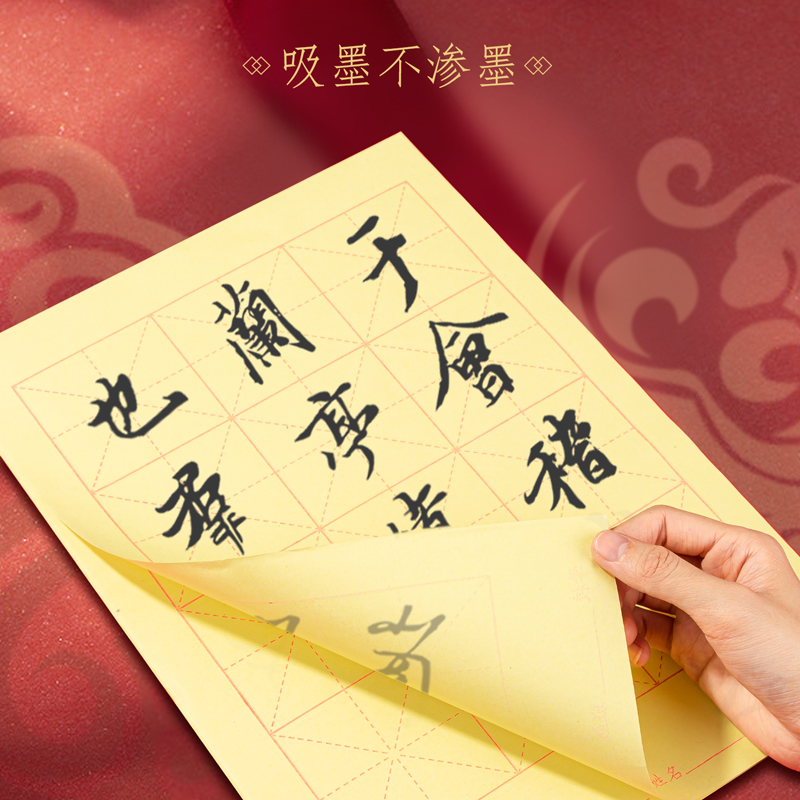 吸墨不渗墨
于會稽
蘭亭
也羣
名